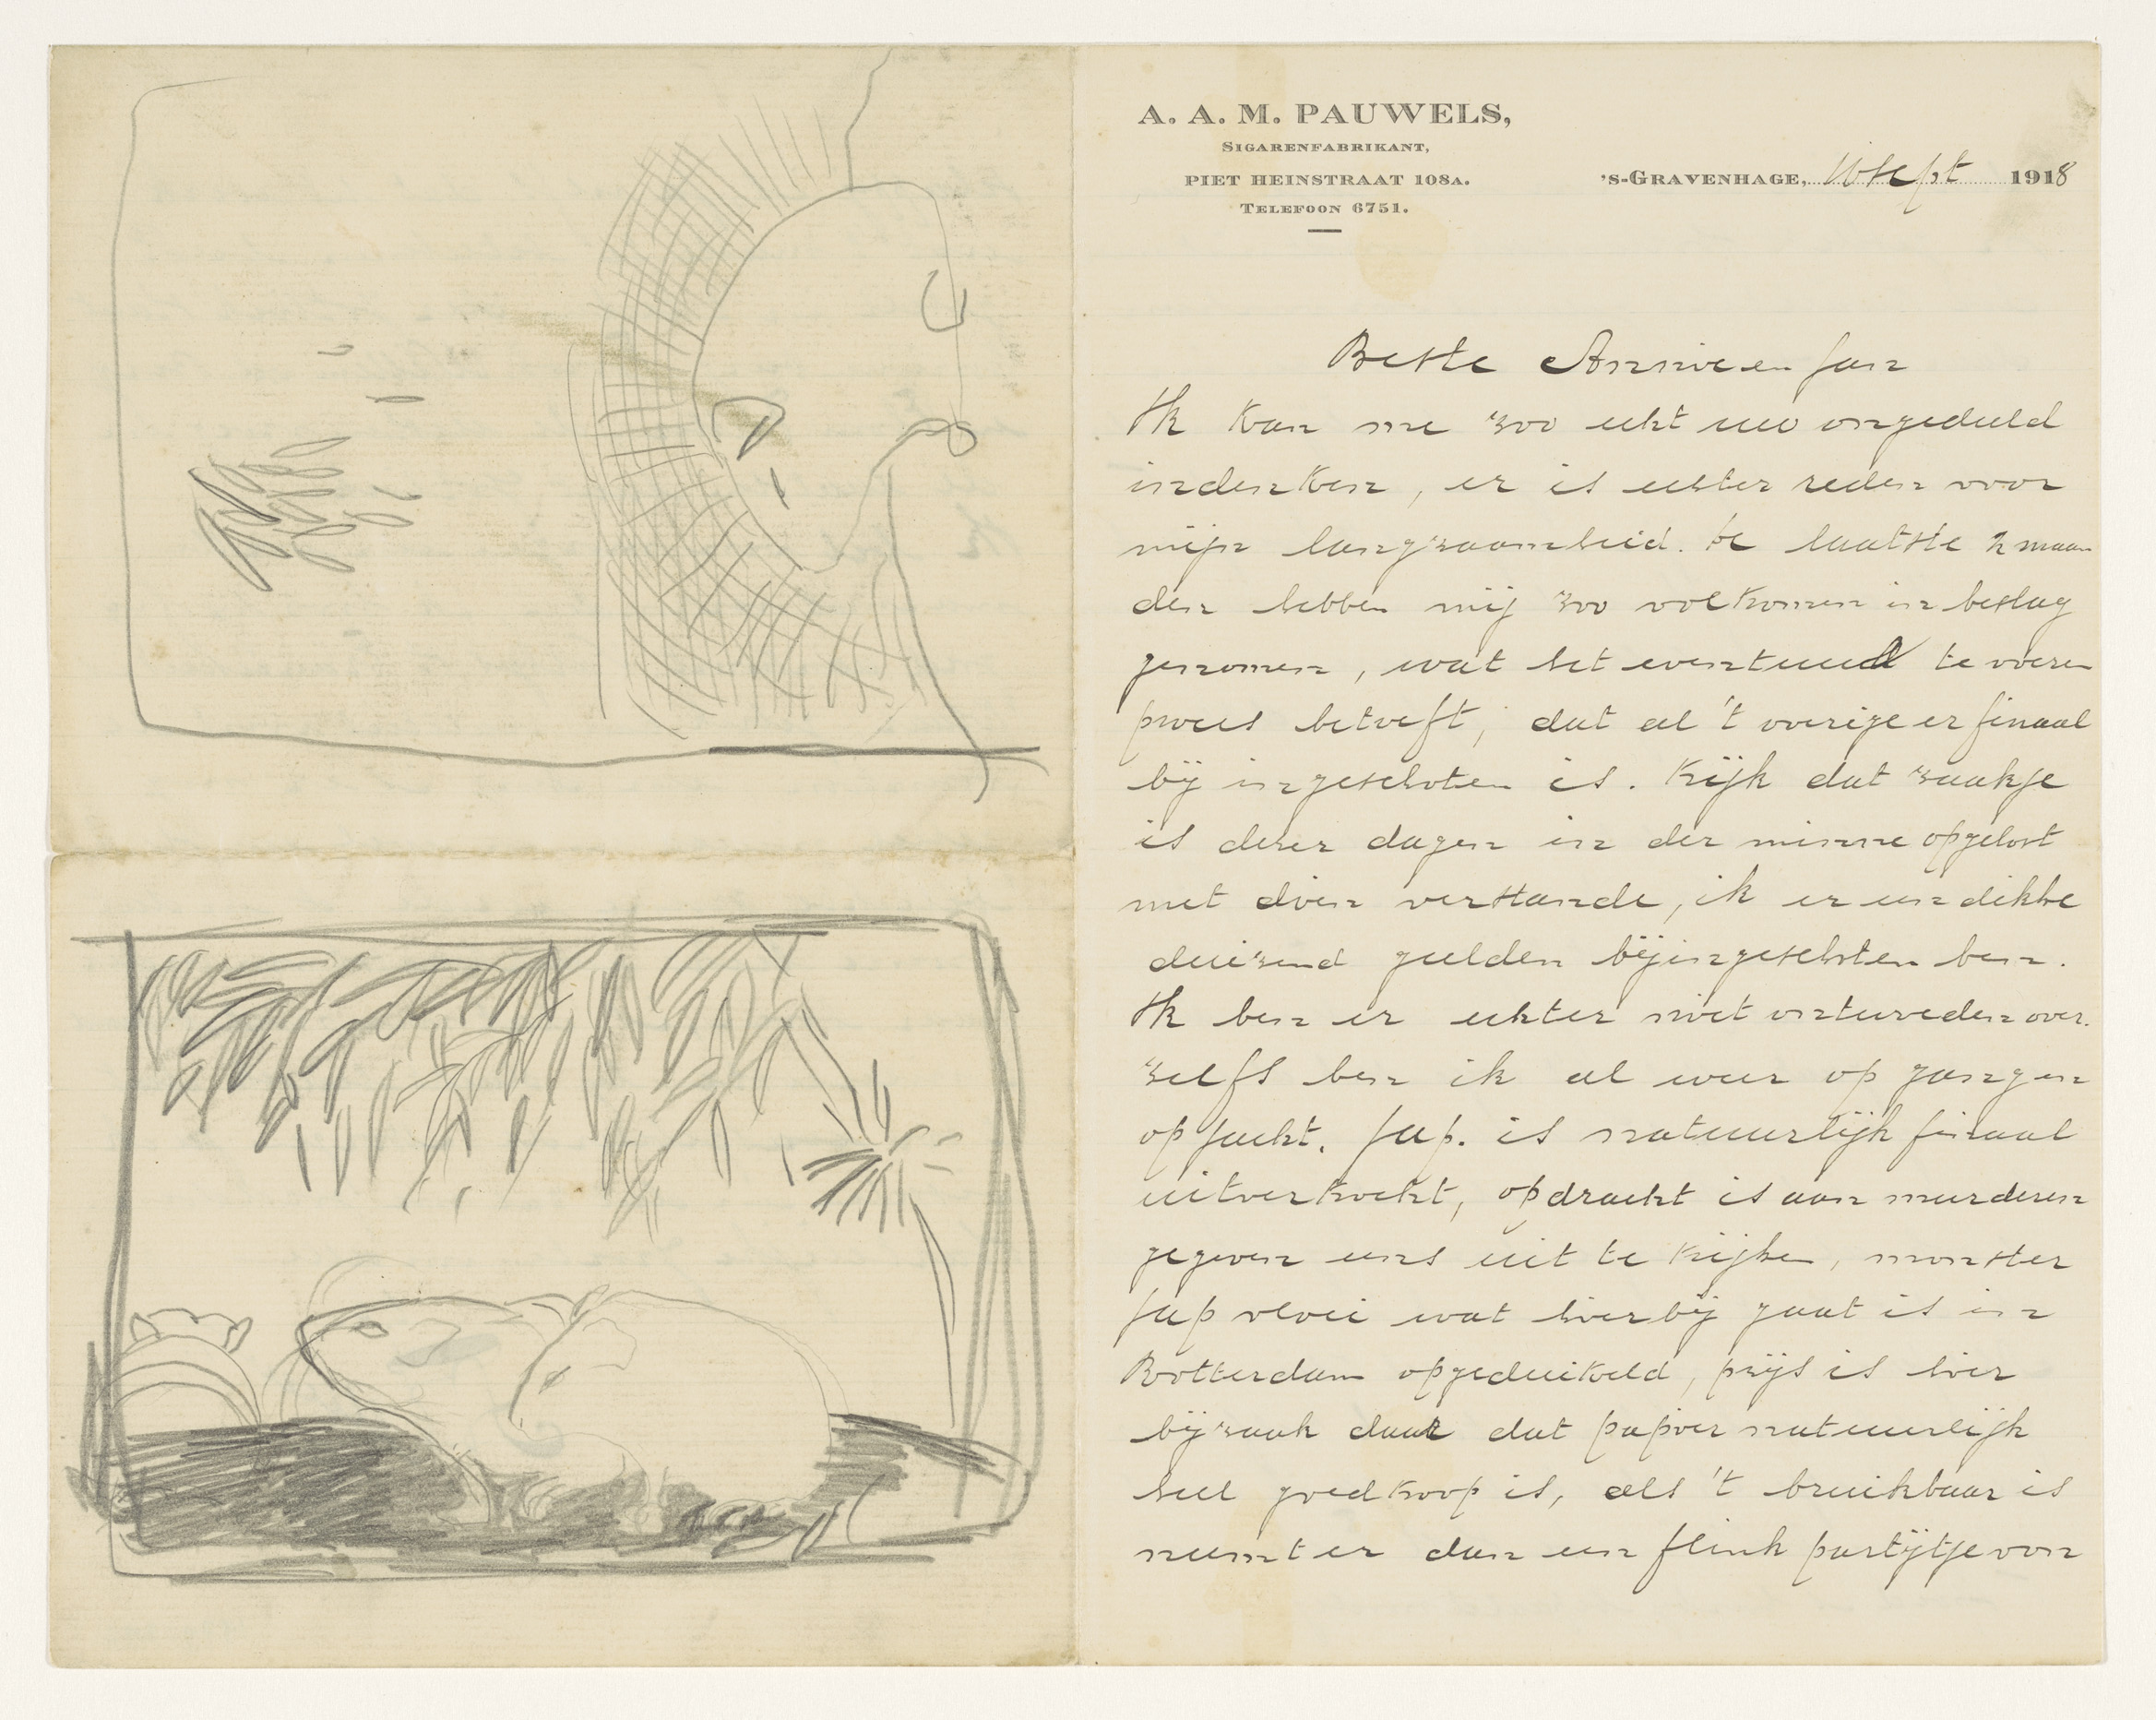 A. A. M. PAUWELS,
SIGARENFABRIKANT,
PIET HEINSTRAAT 108A.
TELEFOON 6751.
'S-GRAVENHAGE, Sept 1918
Beste Annie en Jan
Ik kan me zoo echt uw ongeduld
indenken, er is echter reden voor
mijn langzaamheid. De laatste 2 maan
den hebben mij zoo volkomen in beslag
genomen, wat het eventueel te voeren
proces betreft, dat al 't overige er finaal
bij ingeschoten is. Kijk dat zaakje
is dezer dagen in der minne opgelost
met dien verstande, ik er een dikke
duizend gulden bijingeschoten ben.
Ik ben er echter niet ontevreden over.
Zelfs ben ik al weer op gangen
op jacht. Jap. is natuurlijk finaal
uitverkocht, opdracht is aan meerderen
gegeven eens uit te kijken, monster
Jap vloei wat hierbij gaat is in
Rotterdam opgeduikeld, prijs is hier
bijzaak daar dat papier natuurlijk
heel goedkoop is, als 't bruikbaar is
neemt er dan een flink partijtje von